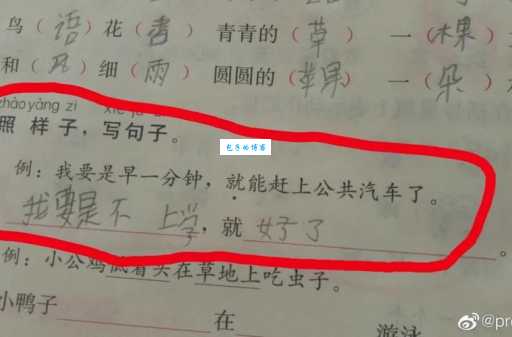 鸟（语）花（香） 青青的（草） 一（棵
和（风）细（雨） 圆圆的（苹果） 一（朵）
zhào yàng zi xiě jù
照样子，写句子。
包子的博客
例：我要是早一分钟，就能赶上公共汽车了。
我要是不上学，就好了。
例：小公鸡低着头在草地上吃虫子。
小鸭子 在 游泳
@pr